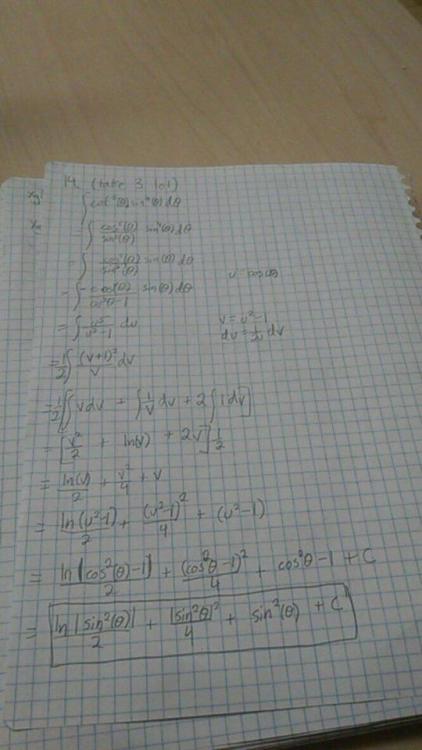 14. (take 3 lol)
∫cot⁵(θ) sin⁴(θ) dθ
= ∫ cos⁵(θ)/sin⁵(θ) sin⁴(θ) dθ
= ∫ cos⁵(θ)/sin²(θ) sin(θ) dθ
= ∫ cos⁵(θ)/cos²θ-1 sin(θ) dθ
u = cos(θ)
= ∫ u⁵/u²-1 du
v = u²-1
du = 1/2u dv
= 1/2 ∫ (v+1)²/v dv
= 1/2 [∫ v dv + ∫ 1/v dv + 2 ∫ 1 dv]
= [v²/2 + ln(v) + 2v] 1/2
= ln(v)/2 + v²/4 + v
= ln(u²-1)/2 + (u²-1)²/4 + (u²-1)
= ln|cos²(θ)-1|/2 + (cos²θ-1)²/4 + cos²θ-1 + C
= ln|sin²(θ)|/2 + |sin²θ|²/4 + sin²(θ) + C